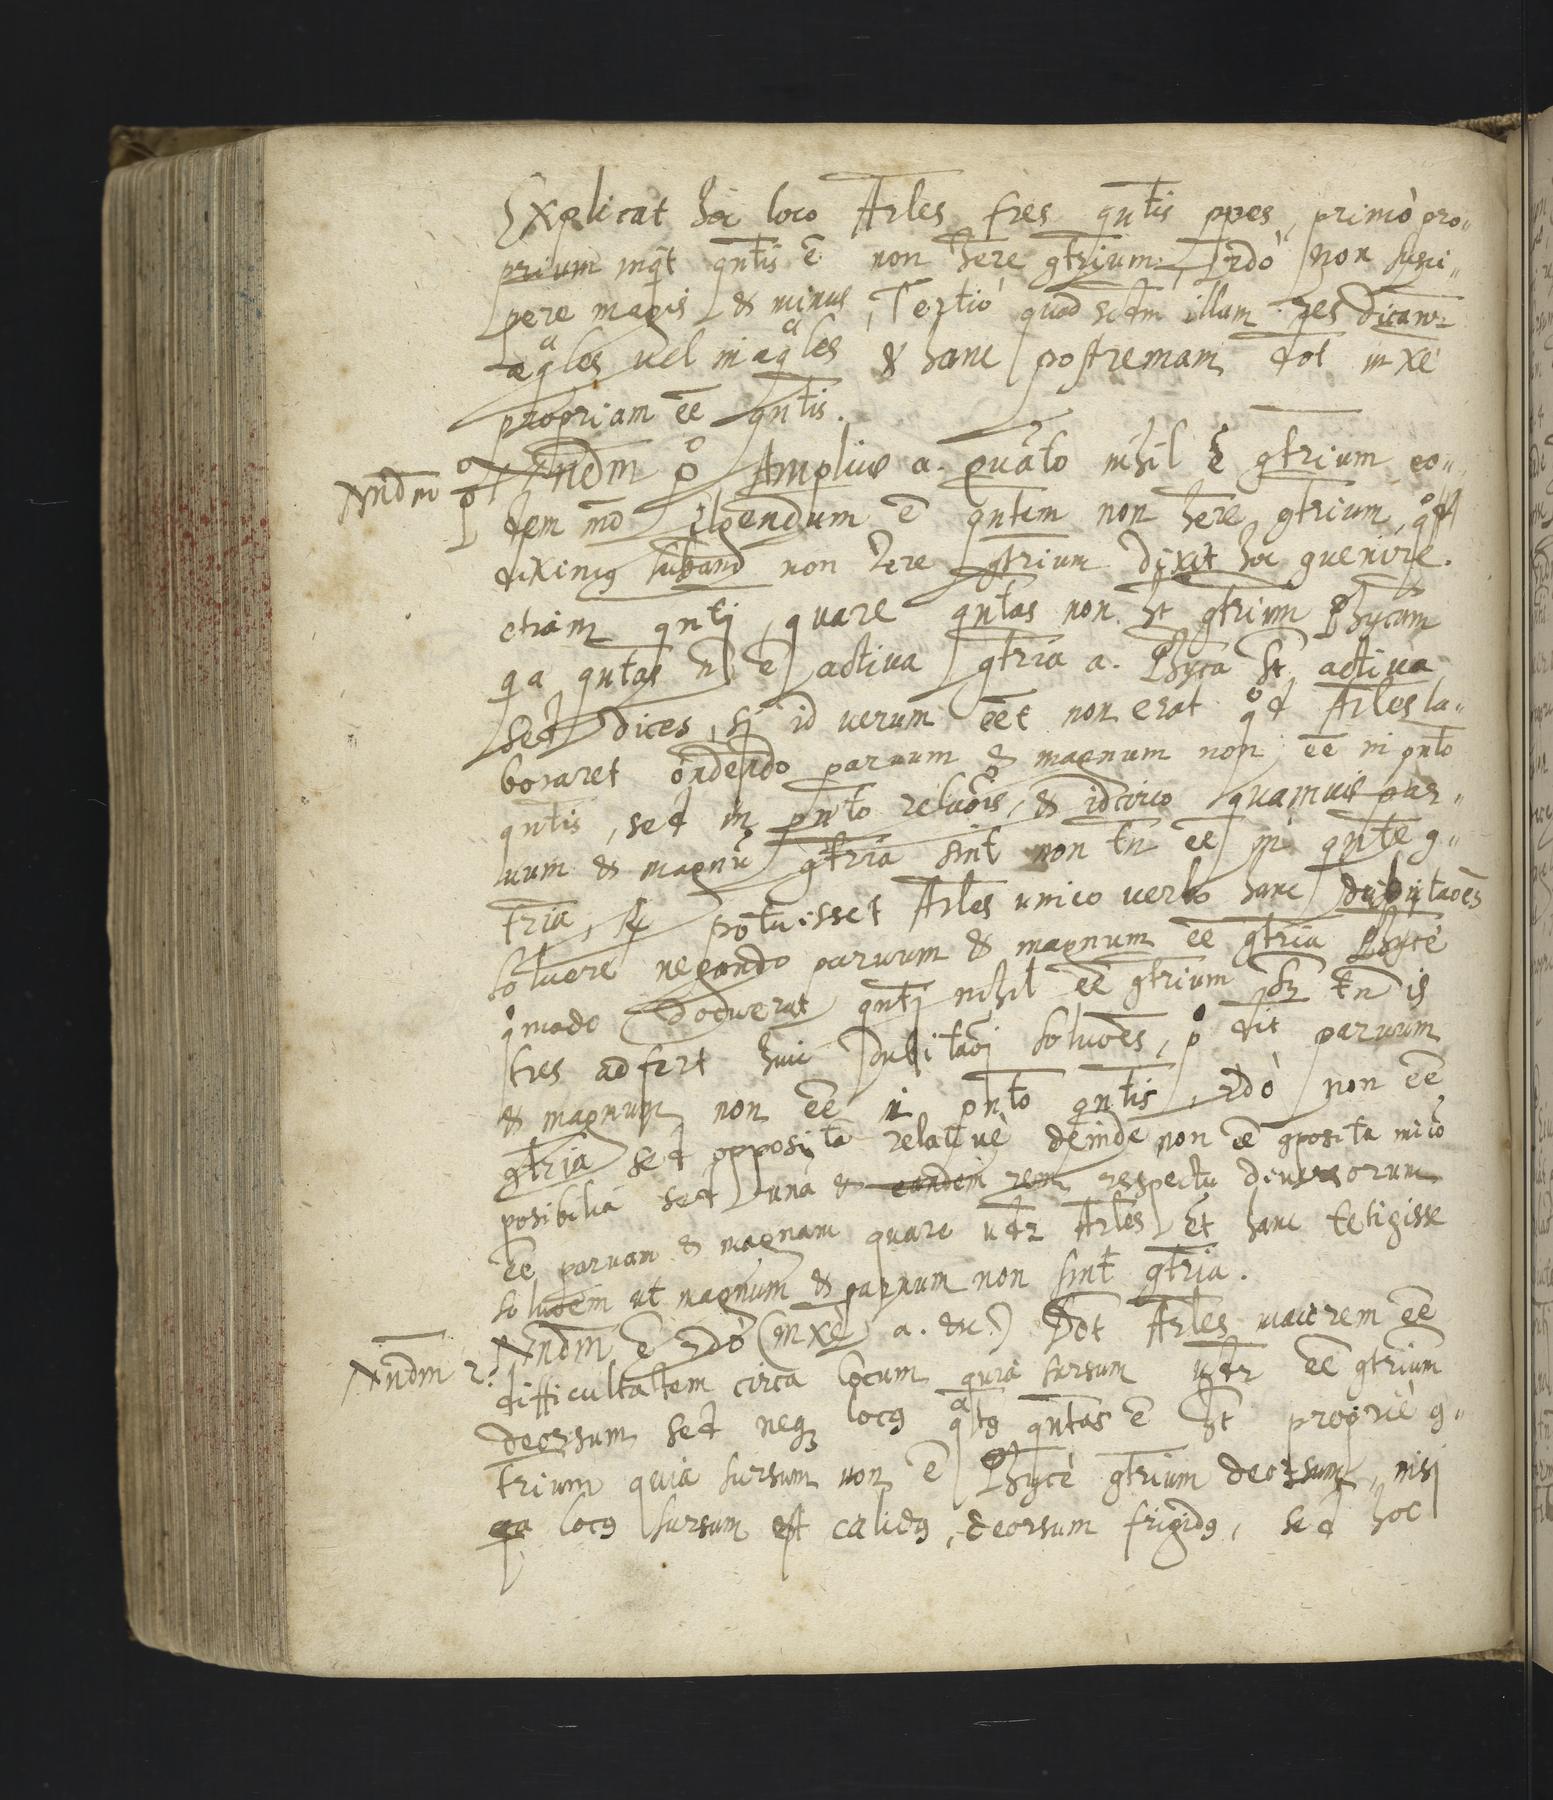 Explicat hoc loco Arles tres qntis ppes, primò pro„
prium inqt qntis ē non here gtrium, 2dò non susci„
pere magis & minus, Tertiò quod scdm illam res dicant2
aeqales vel inaeqales & hanc postremam dot inxe
propriam ēē qntis.
Nndm po
Nndm po Amplius a. quāto nihil ē gtrium eo„
dem md Iligendum ē qntem non here gtrium, qod
diximus subano non here gtrium dixit hoc guenire
etiam qnti, quare qntas non ht gtrium Phycum
qa qntas n ē activa gtria a. Phyca st activa
Sed dices, si id verum ēēt non erat qod Arles la„
boraret ōndendo parvum & magnum non ēē in pnto
qntis, sed in pnto relaōis, & idcirco quamvis par„
vum & magnū gtria sint non tn ēē in qnte g„
tria, & potuisset Arles unico verbo hanc dubitaoēs
solvere negando parvum & magnum ēē gtria Phycè
qomodo docuerat qnti nihil ēē gtrium, sz tn is
tres adfert huic dubitaoi soluoēs, po dit parvum
& magnum non ēē in pnto qntis, 2dò non ēē
gtria sed opposita relativè deinde non ēē gposita
posibilia sed una & eandem rem respectu diversorum
ēē parvam & magnam quare vdr Arles ēt hanc tetigisse
soluoem ut magnum & parvum non sint gtria.
Nndm 2o
Nndm ē 2dò (inxe a. etc.) Dot Arles maiorem ēē
difficultatem circa locum quia sursum vdr ēē gtrium
deorsum sed neqz locus qatus qntas ē ht propriè g„
trium quia sursum non ē Phycè gtrium deorsum, nisi
qa locus sursum est calidus, deorsum frigidus, sed hoc